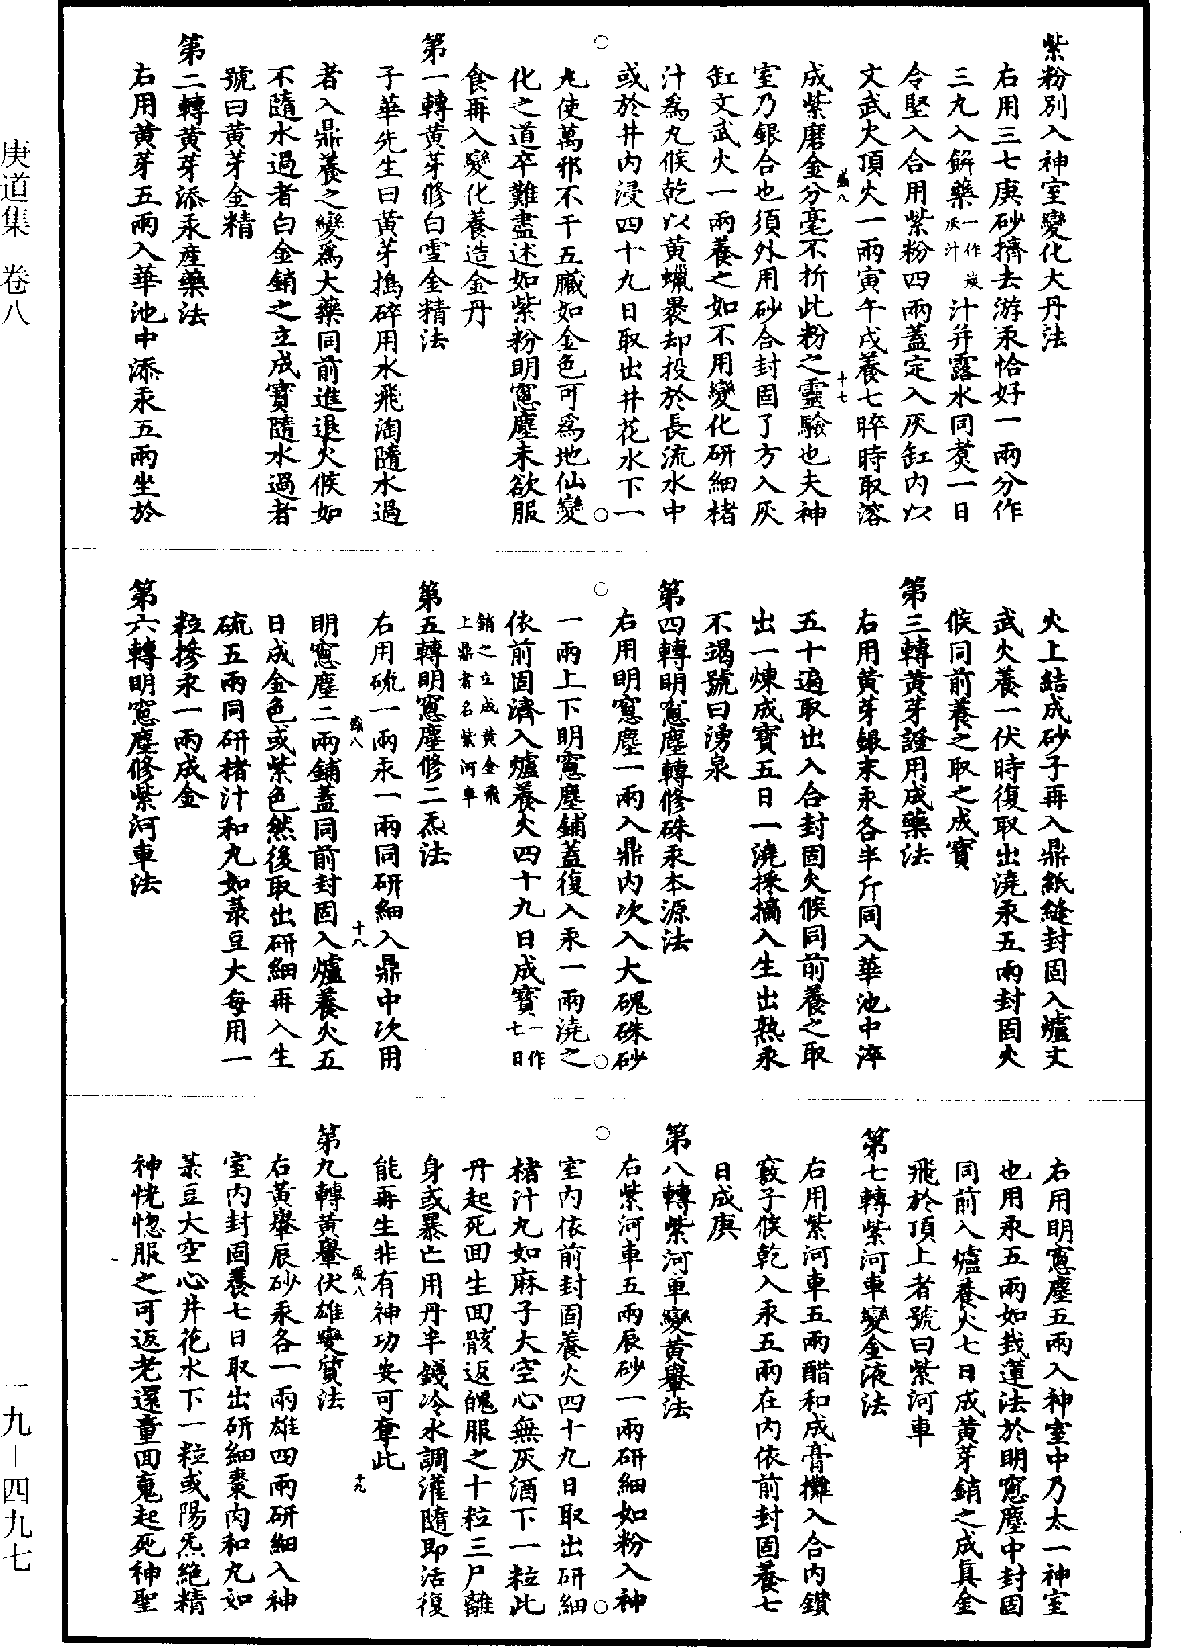 庚道集　卷八
紫粉別入神室變化大丹法
右用三七庚砂擠去游汞恰好一兩分作
三丸入解藥一作葮灰汁汁并露水同煑一日
令堅入合用紫粉四兩蓋定入灰缸內以
文武火頂火一兩寅午戌養七晬時取溶
成紫磨金分毫不折此粉之靈驗也夫神
室乃銀合也須外用砂合封固了方入灰
缸文武火一兩養之如不用變化研細楮
汁為丸候乾以黃蠟裹却投於長流水中
或於井內浸四十九日取出井花水下一
丸使萬邪不干五臟如金色可為地仙變
化之道卒難盡述如紫粉明窻塵未欲服
食再入變化養造金丹
第一轉黃芽修白雪金精法
子華先生曰黃芽搗碎用水飛淘隨水過
者入鼎養之變為大藥同前進退火候如
不隨水過者白金銷之立成寶隨水過者
號曰黃芽金精
第二轉黃芽添汞產藥法
右用黃芽五兩入華池中添汞五兩坐於
火上結成砂子再入鼎紙縫封固入爐文
武火養一伏時復取出澆汞五兩封固火
候同前養之取之成寶
第三轉黃芽證用成藥法
右用黃芽銀末汞各半斤同入華池中淬
五十遍取出入合封固火候同前養之取
出一煉成寶五日一澆採摘入生出熟汞
不竭號曰湧泉
第四轉明窻塵轉修硃汞本源法
右用明窻塵一兩入鼎內次入大磈硃砂
一兩上下明窻塵鋪蓋復入汞一兩澆之
依前固濟入爐養火四十九日成寶一作七日
銷之立成黃金飛上鼎者名紫河車
第五轉明窻塵修二炁法
右用硫一兩汞一兩同研細入鼎中次用
明窻塵二兩鋪蓋同前封固入爐養火五
日成金色或紫色然後取出研細再入生
硫五兩同研楮汁和丸如菉豆大每用一
粒摻汞一兩成金
第六轉明窻塵修紫河車法
右用明窻塵五兩入神室中乃太一神室
也用汞五兩如栽蓮法於明窻塵中封固
同前入爐養火七日成黃芽銷之成真金
飛於頂上者號曰紫河車
第七轉紫河車變金液法
右用紫河車五兩醋和成膏攤入合內鑽
竅子候乾入汞五兩在內依前封固養七
日成庚
第八轉紫河車變黃轝法
右紫河車五兩辰砂一兩研細如粉入神
室內依前封固養火四十九日取出研細
楮汁丸如麻子大空心無灰酒下一粒此
丹起死回生回骸返魄服之十粒三尸離
身或暴亡用丹半錢冷水調灌隨即活復
能再生非有神功安可奪此
第九轉黃轝伏雄變質法
右黃轝辰砂汞各一兩雄四兩研細入神
室內封固養七日取出研細棗肉和丸如
菉豆大空心井花水下一粒或陽炁絕精
神恍惚服之可返老還童回䰟起死神聖
一九—四九七